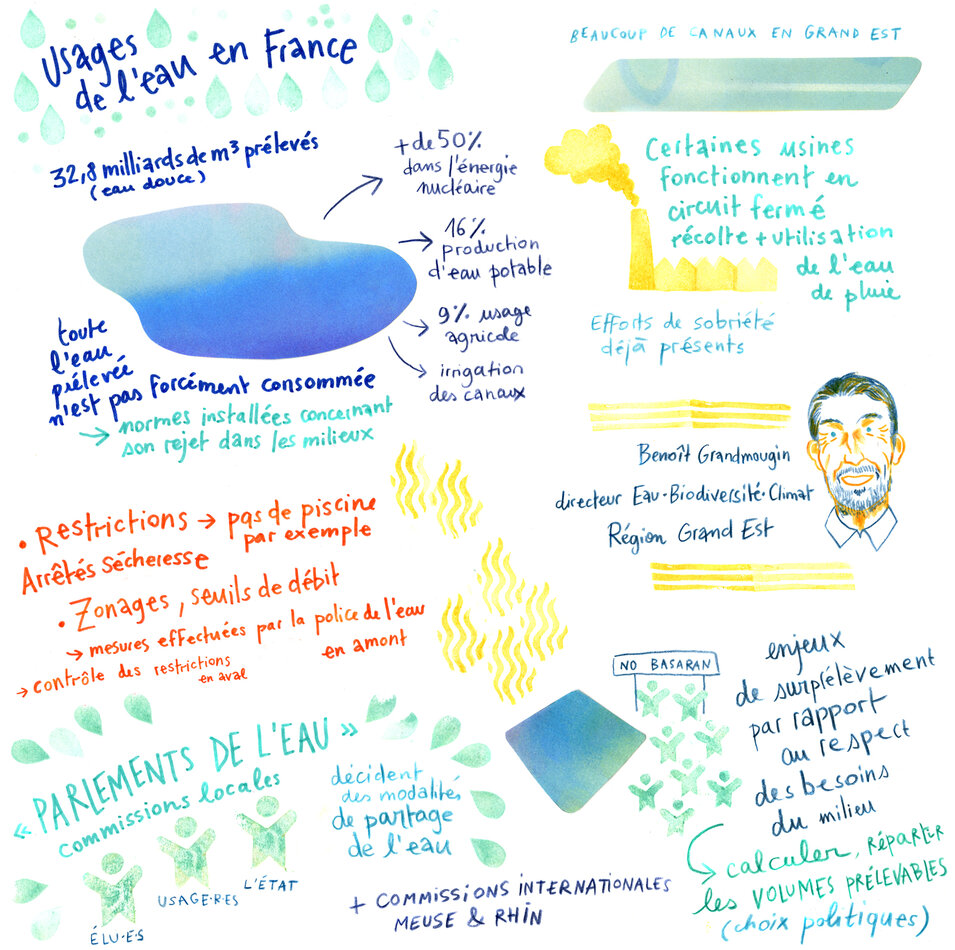 Usages
de l'eau en France
32,8 milliards de m³ prélevés
(eau douce)
+ de 50%
dans l'énergie
nucléaire
16%
production
d'eau potable
9% usage
agricole
irrigation
des canaux
toute
l'eau
prélevée
n'est pas forcément consommée
→ normes installées concernant
son rejet dans les milieux
BEAUCOUP DE CANAUX EN GRAND EST
Certaines usines
fonctionnent en
circuit fermé
récolte + utilisation
de l'eau
de pluie
Efforts de sobriété
déjà présents
Benoît Grandmougin
directeur Eau・Biodiversité・Climat
Région Grand Est
• Restrictions → pas de piscine
par exemple
Arrêtés sécheresse
• Zonages, seuils de débit
→ mesures effectuées par la police de l'eau
en amont
→ contrôle des restrictions
en aval
« PARLEMENTS DE L'EAU »
commissions locales
ÉLU·E·S
USAGE·R·ES
L'ÉTAT
décident
des modalités
de partage
de l'eau
+ COMMISSIONS INTERNATIONALES
MEUSE & RHIN
NO BASARAN
enjeux
de surprélèvement
par rapport
au respect
des besoins
du milieu
calculer, RÉPARTER
les VOLUMES PRÉLEVABLES
(choix politiques)